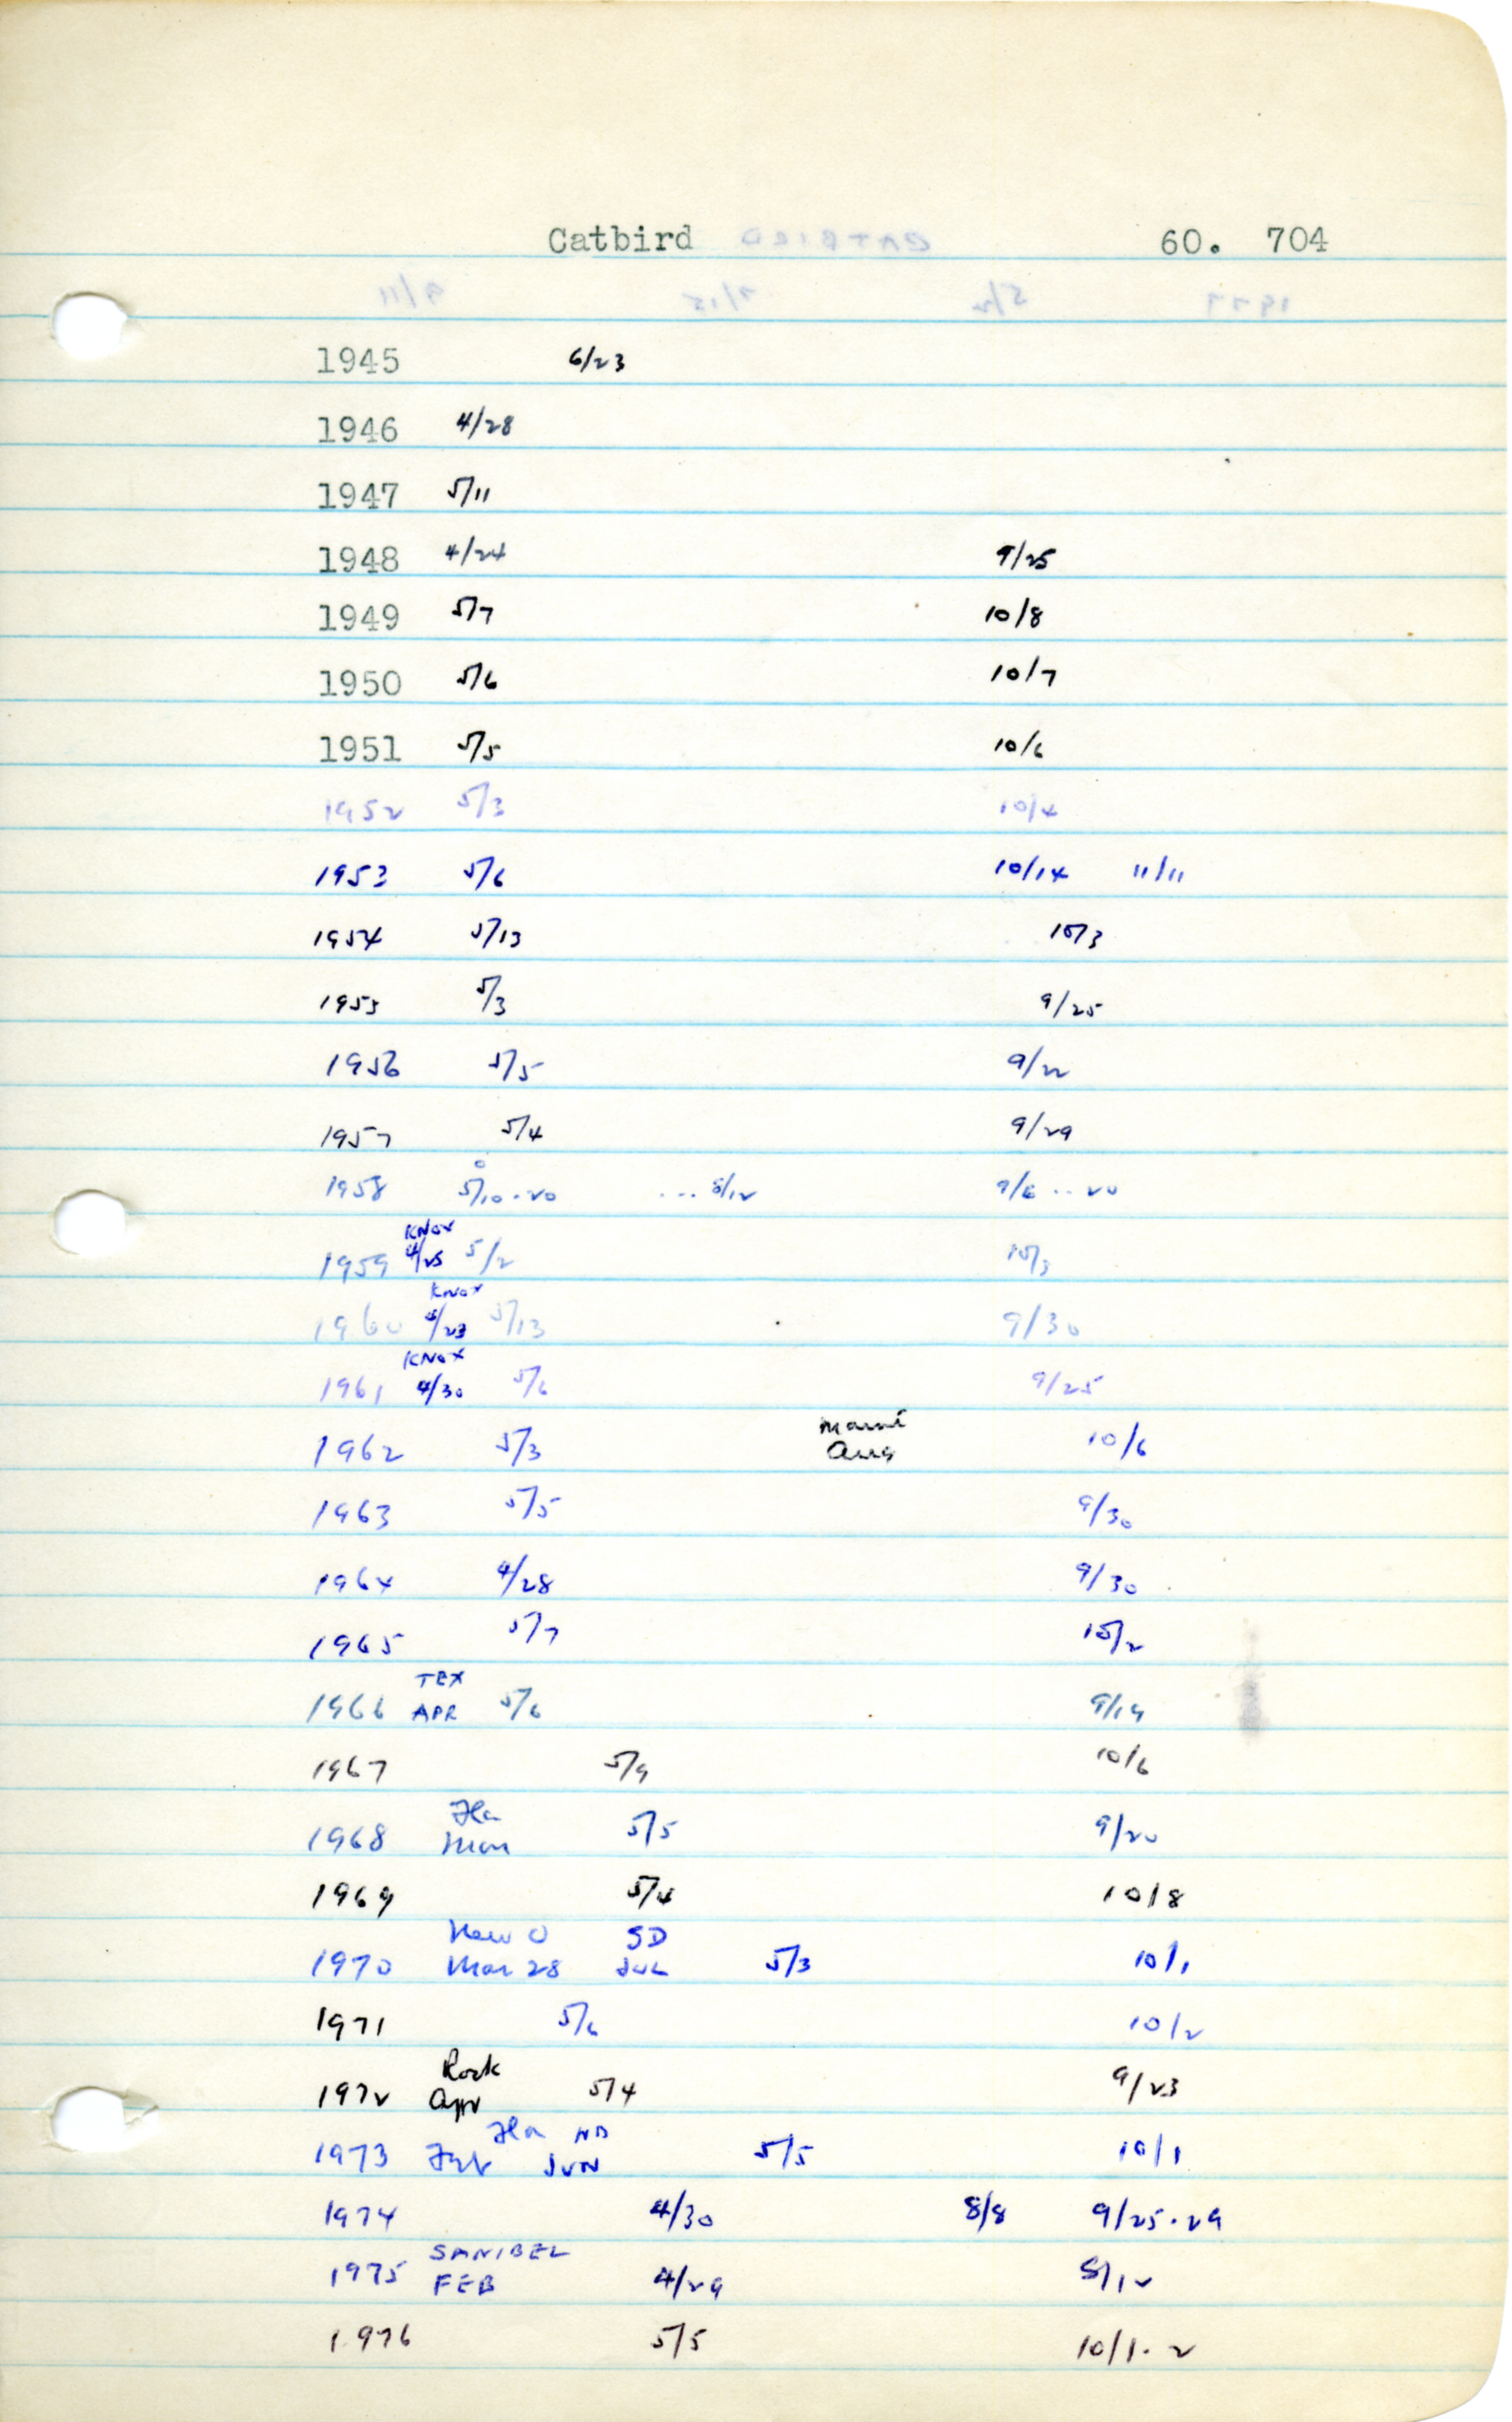 Catbird 60. 704
1945 6/23
1946 4/28
1947 5/11
1948 4/24 9/25
1949 5/7 10/8
1950 5/6 10/7
1951 5/5 10/6
1952 5/3 10/4
1953 5/6 10/14 11/11
1954 5/13 10/3
1955 5/3 9/25
1956 5/5 9/22
1957 5/4 9/29
1958 5/10.20 ... 8/12 9/6 .. 20
KNOX
1959 4/25 5/2 10/3
KNOX
1960 /23 5/13 9/30
KNOX
1961 4/30 5/6 9/25
1962 5/3 Aug 10/6
1963 5/5 9/30
1964 4/28 9/30
1965 5/7 10/2
TEX
1966 APR 5/6 9/19
1967 5/9 10/6
Fla
1968 Mar 5/5 9/20
1969 5/4 10/8
New O SD
1970 Mar 28 JUL 5/3 10/1
1971 5/6 10/2
Rock
1972 Apr 5/4 9/23
Fla NB
1973 Feb JUN 5/5 10/1
1974 4/30 8/8 9/25.29
SANIBEL
1975 FEB 4/29 8/12
1976 5/5 10/1.2